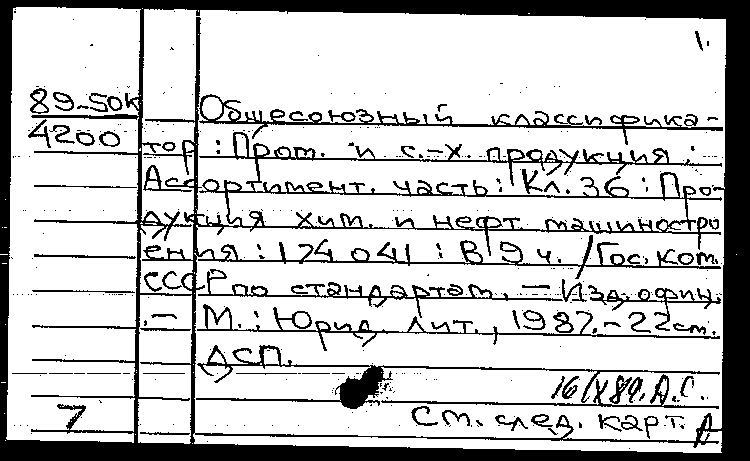 1.
89-50к
4200
Общесоюзный классифика-
тор : Пром. и с.-х. продукция :
Ассортимент. часть : Кл. 36 : Про-
дукция хим. и нефт. машиностро
ения : 174 041 : В 9 ч. / Гос. ком.
СССР по стандартам. — Изд. офиц.
.— М. : Юрид. лит., 1987.— 22 см.
ДСП.
16/X89. А.С.
7
См. след. карт.